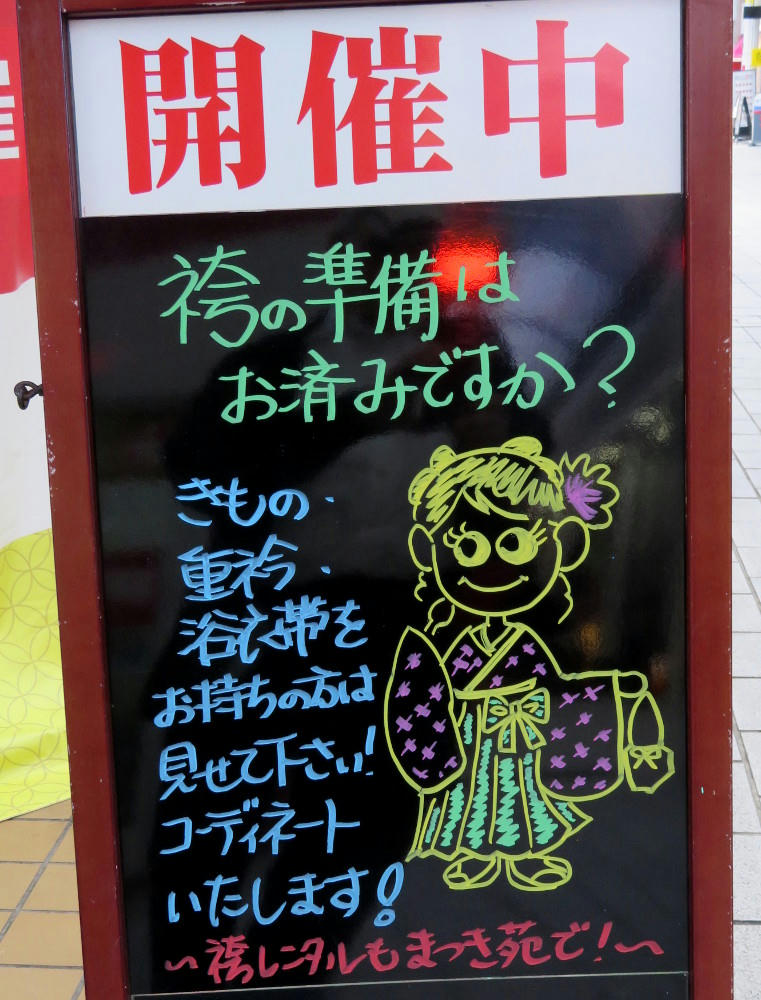 開催中
袴の準備は
お済みですか?
きもの・
重衿・
浴衣帯を
お持ちの方は
見せて下さい!
コーディネート
いたします!
~袴レンタルもまつき苑で!~